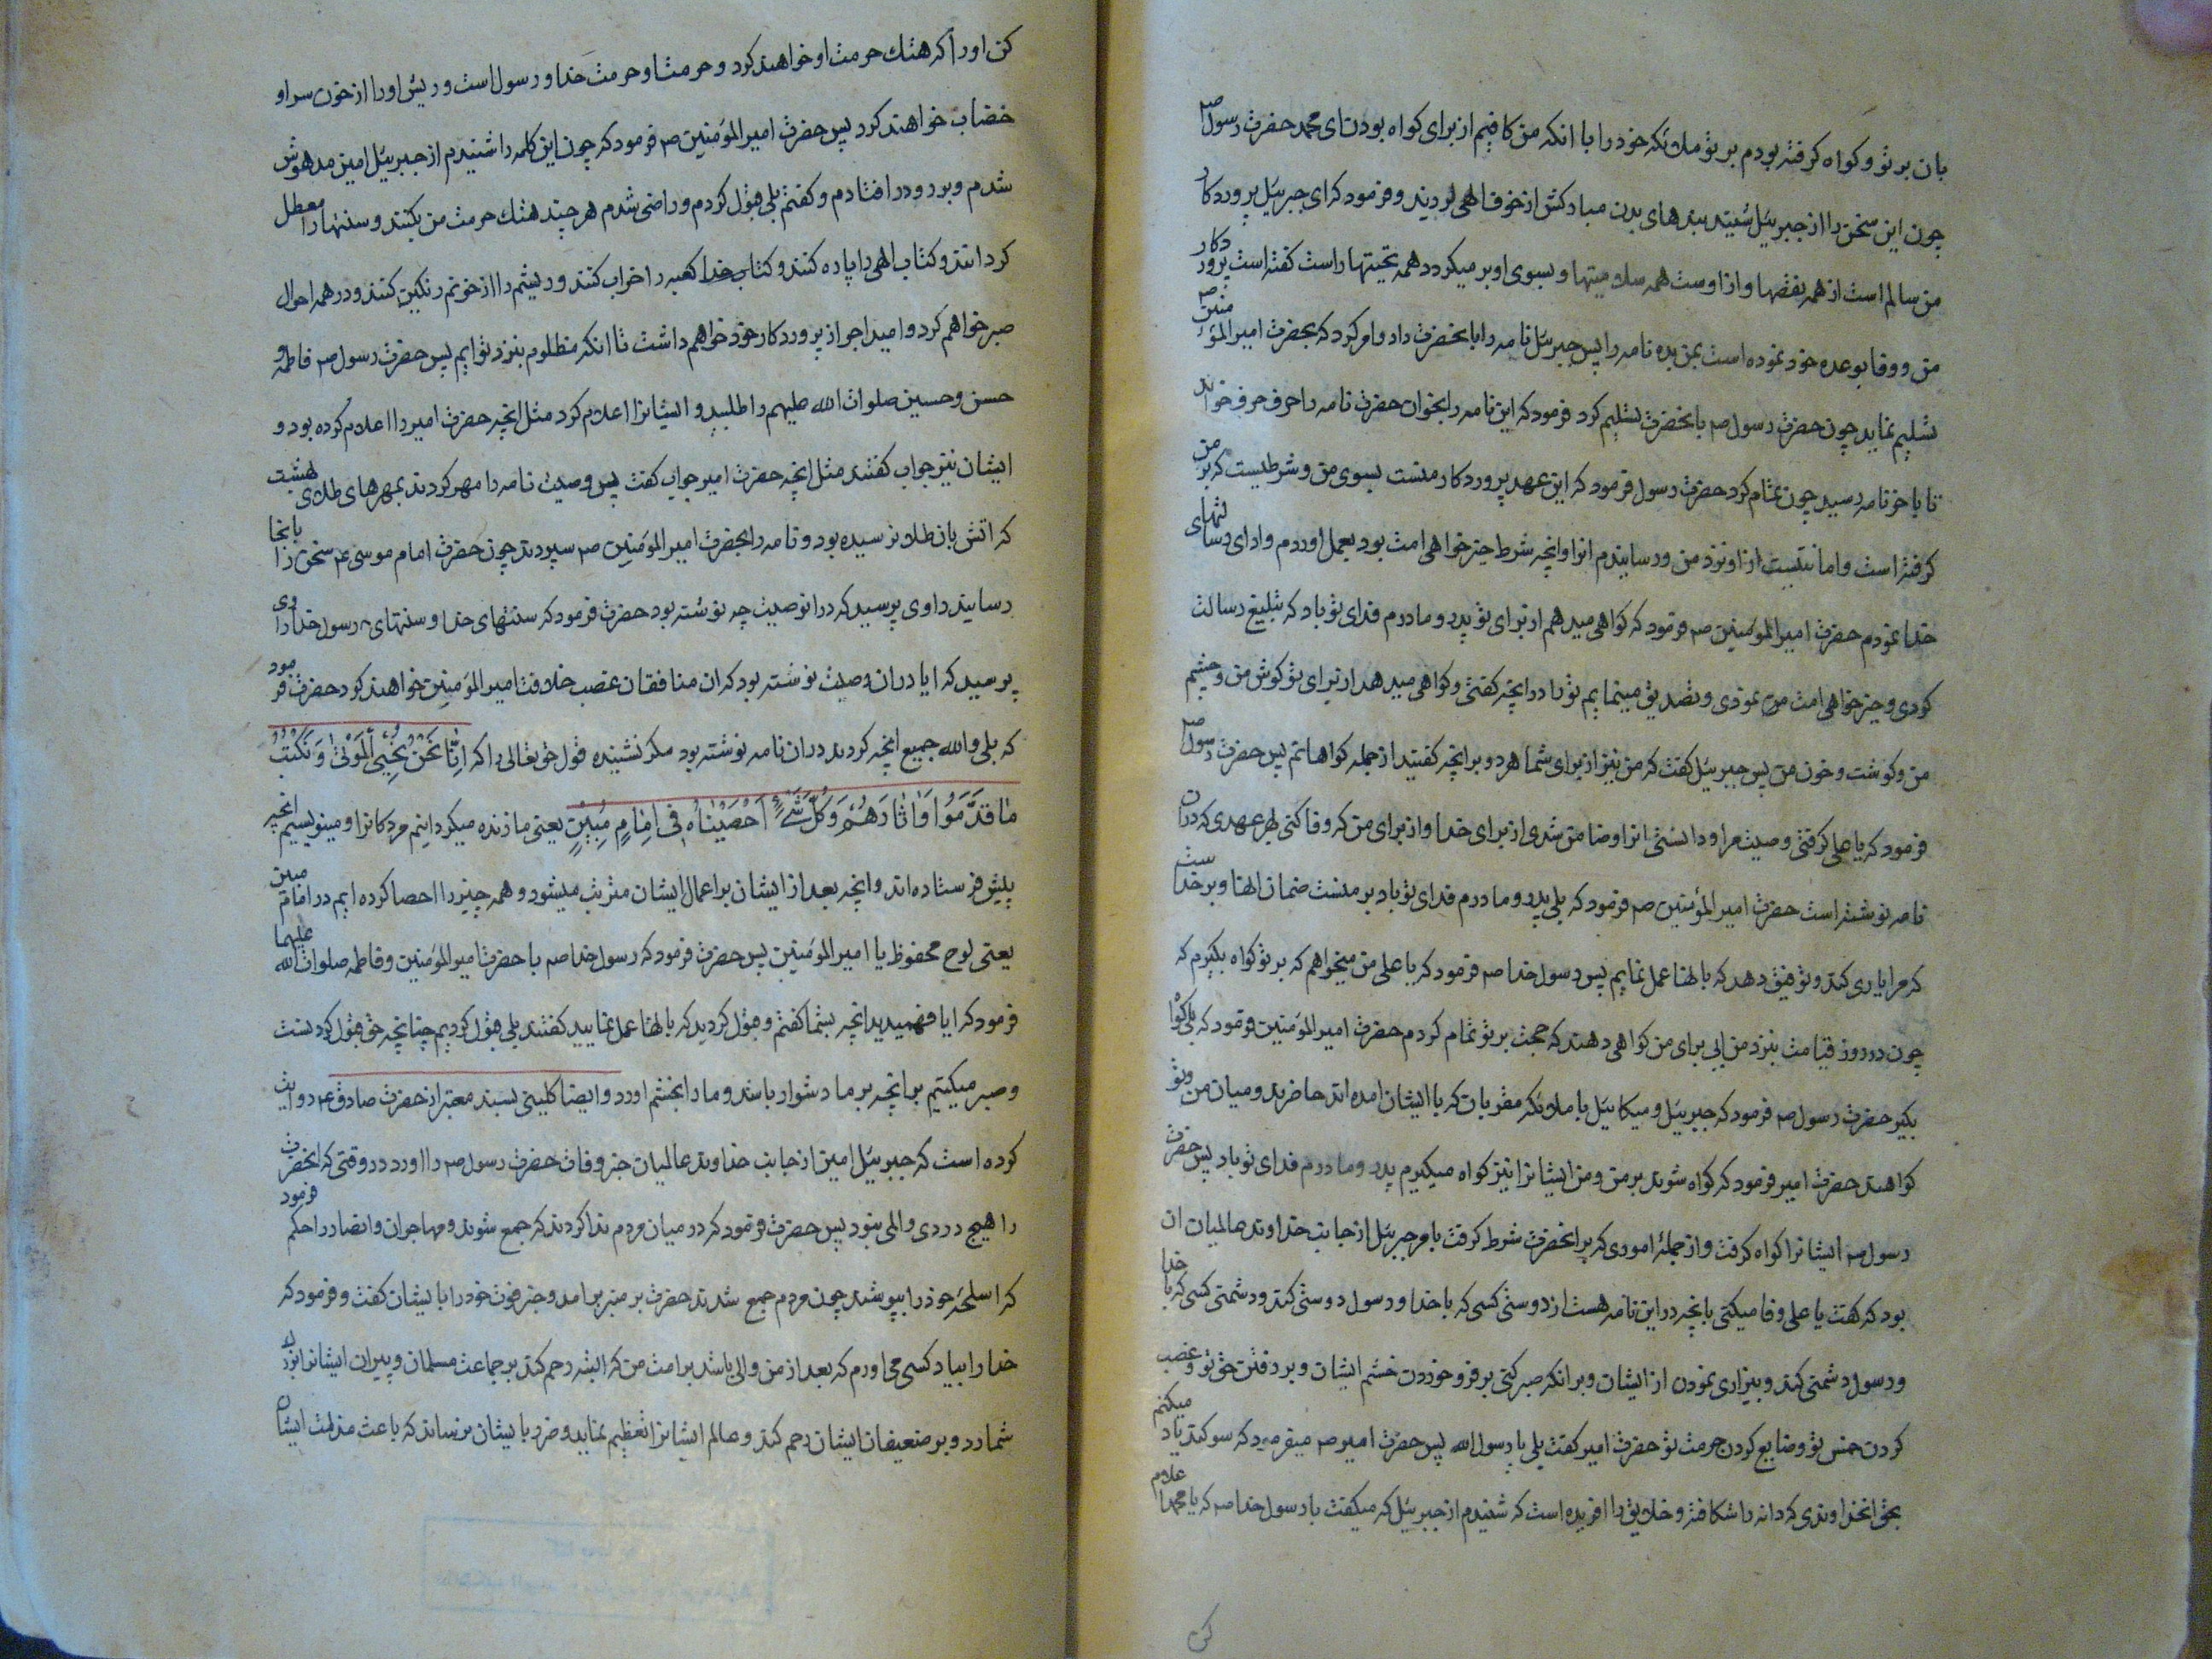 بان بر تو و کواه کرفته بودم بر تو ملائکه خود را با انکه من کافیم از برای کواه بودن ای محمد حضرت رسول صم
چون این سخن را از جبرئیل شنید بندهای بدن مبارکش از خوف الهی لرزید و فرمود که ای جبرئیل پروردکار
من سالم است از همه نقصها و از اوست همه سلامیتها و بسوی او بر میکردد همه تحیتها راست کفته است پروردکار
من و وفا بوعده خود نموده است بمن بده نامه را پس جبرئیل نامه را بانحضرت داد و امر کرد که بحضرت امیرالمؤمنین صم
تسلیم نماید چون حضرت رسول صم بانحضرت تسلیم کرد فرمود که این نامه را بخوان حضرت نامه را حرف حرف خواند
تا باخر نامه رسید چون تمام کرد حضرت رسول فرمود که این عهد پروردکار منست بسوی من و شرطیست که بر من
کرفته است و امانتیست از او نزد من و رسانیدم انرا و انچه شرط خیرخواهی امت بود بعمل اوردم و ادای رسالتهای
خدا نمودم حضرت امیرالمؤمنین صم فرمود که کواهی میدهم از برای تو پدر و مادرم فدای تو باد که تبلیغ رسالت
کردی و خیرخواهی امت من نمودی و تصدیق مینمایم تو را در انچه کفتی و کواهی میدهد از برای تو کوش من و چشم
من و کوشت و خون من پس جبرئیل کفت که من نیز از برای شما هر دو بر انچه کفتید از جمله کواهانم پس حضرت رسول صم
فرمود که یا علی کرفتی وصیت مرا و دانستی انرا و ضامن شدی از برای خدا و از برای من که وفا کنی بهر عهدی که در ان
نامه نوشته است حضرت امیرالمؤمنین صم فرمود که بلی پدر و مادرم فدای تو باد بر منست ضمان انها و بر خداست
که مرا یاری کند و توفیق دهد که بانها عمل نمایم پس رسول خدا صم فرمود که یا علی من میخواهم که بر تو کواه بکیرم که
چون در روز قیامت بنزد من ایی برای من کواهی دهند که حجت بر تو تمام کردم حضرت امیرالمؤمنین فرمود که بلی کواه
بکیر حضرت رسول صم فرمود که جبرئیل و میکائیل با ملائکه مقربان که با ایشان امده اند حاضرند و میان من و تو
کواهند حضرت امیر فرمود که کواه شوند بر من و من ایشانرا نیز کواه میکیرم پدر و مادرم فدای تو باد پس حضرت
رسول صم ایشانرا کواه کرفت و از جملهٔ اموری که بر انحضرت شرط کرفت بامر جبرئیل از جانب خداوند عالمیان ان
بود که کفت یا علی وفا میکنی بانچه در این نامه هست از دوستی کسی که با خدا و رسول دوستی کند و دشمنی کسی که با خدا
و رسول دشمنی کند و بیزاری نمودن از ایشان و بر انکه صبر کنی بر فرو خوردن خشم ایشان و بر رفتن حق تو و غصب
کردن خمس تو و ضایع کردن حرمت تو حضرت امیر کفت بلی یا رسول الله پس حضرت امیر صم میفرمود که سوکند یاد میکنم
بحق انخداوندی که دانه را شکافته و خلایق را افریده است که شنیدم از جبرئیل که میکفت با رسول خدا صم که یا محمد اعلام
کن
کن او را که هتک حرمت او خواهند کرد و حرمت او حرمت خدا و رسول است و ریش او را از خون سر او
خضاب خواهند کرد پس حضرت امیرالمؤمنین صم فرمود که چون این کلمه را شنیدم از جبرئیل امین مدهوش
شدم و بر رو در افتادم و کفتم بلی قبول کردم و راضی شدم هر چند هتک حرمت من بکنند و سنتها را معطل
کردانند و کتاب الهی را پاره کنند و کتاب خدا کعبه را خراب کنند و ریشم را از خونم رنکین کنند و در همه احوال
صبر خواهم کرد و امید اجر از پروردکار خود خواهم داشت تا انکه مظلوم بنزد تو ایم پس حضرت رسول صم فاطمه و
حسن و حسین صلوات الله علیهم را طلبید و ایشانرا اعلام کرد مثل انچه حضرت امیر را اعلام کرده بود و
ایشان نیز جواب کفتند مثل انچه حضرت امیر جواب کفت پس وصیت نامه را مهر کردند بمهرهای طلای بهشت
که اتش بان طلا نرسیده بود و نامه را بحضرت امیرالمؤمنین صم سپردند چون حضرت امام موسی ع سخن را بانجا
رسانید راوی پرسید که در ان وصیت چه نوشته بود حضرت فرمود که سنتهای خدا و سنتهای رسول خدا راوی
پرسید که ایا در ان وصیت نوشته بود که ان منافقان غصب خلافت امیرالمؤمنین خواهند کرد حضرت فرمود
که بلی والله جمیع انچه کردند در ان نامه نوشته بود مکر نشنیده قول حق تعالی را که اِنّٰا نَحْنُ نُحْیِی الْمَوْتیٰ وَ نَکْتُبُ
مٰا قَدَّمُوا وَ اٰثٰارَهُمْ وَ کُلَّ شَیْءٍ اَحْصَیْنٰاهُ فی اِمٰامٍ مُبینٍ یعنی ما زنده میکردانیم مردکانرا و مینویسیم انچه
پیش فرستاده اند و انچه بعد از ایشان بر اعمال ایشان مترتب میشود و همه چیز را احصا کرده ایم در امام مبین
یعنی لوح محفوظ یا امیرالمؤمنین پس حضرت فرمود که رسول خدا صم با حضرت امیرالمؤمنین و فاطمه صلوات الله علیهما
فرمود که ایا فهمیدید انچه بشما کفتم و قبول کردید که بانها عمل نمایید کفتند بلی قبول کردیم چنانچه حق قبول کردنست
و صبر میکنیم بر انچه بر ما دشوار باشد و ما را بخشم اورد و ایضا کلینی بسند معتبر از حضرت صادق ع روایت
کرده است که جبرئیل امین از جانب خداوند عالمیان خبر وفات حضرت رسول صم را اورد در وقتی که انحضرت
را هیچ دردی و المی نبود پس حضرت فرمود که در میان مردم ندا کردند که جمع شوند و مهاجران و انصار را حکم فرمود
که اسلحهٔ خود را بپوشند چون مردم جمع شدند حضرت بر منبر برامد و خبر فوت خود را بایشان کفت و فرمود که
خدا را بیاد کسی می اورم که بعد از من والی باشد بر امت من که البته رحم کند بر جماعت مسلمان و پیران ایشانرا بزرک
شمارد و بر ضعیفان ایشان رحم کند و عالم ایشانرا تعظیم نماید و ضرر بایشان نرساند که باعث مذلت ایشان